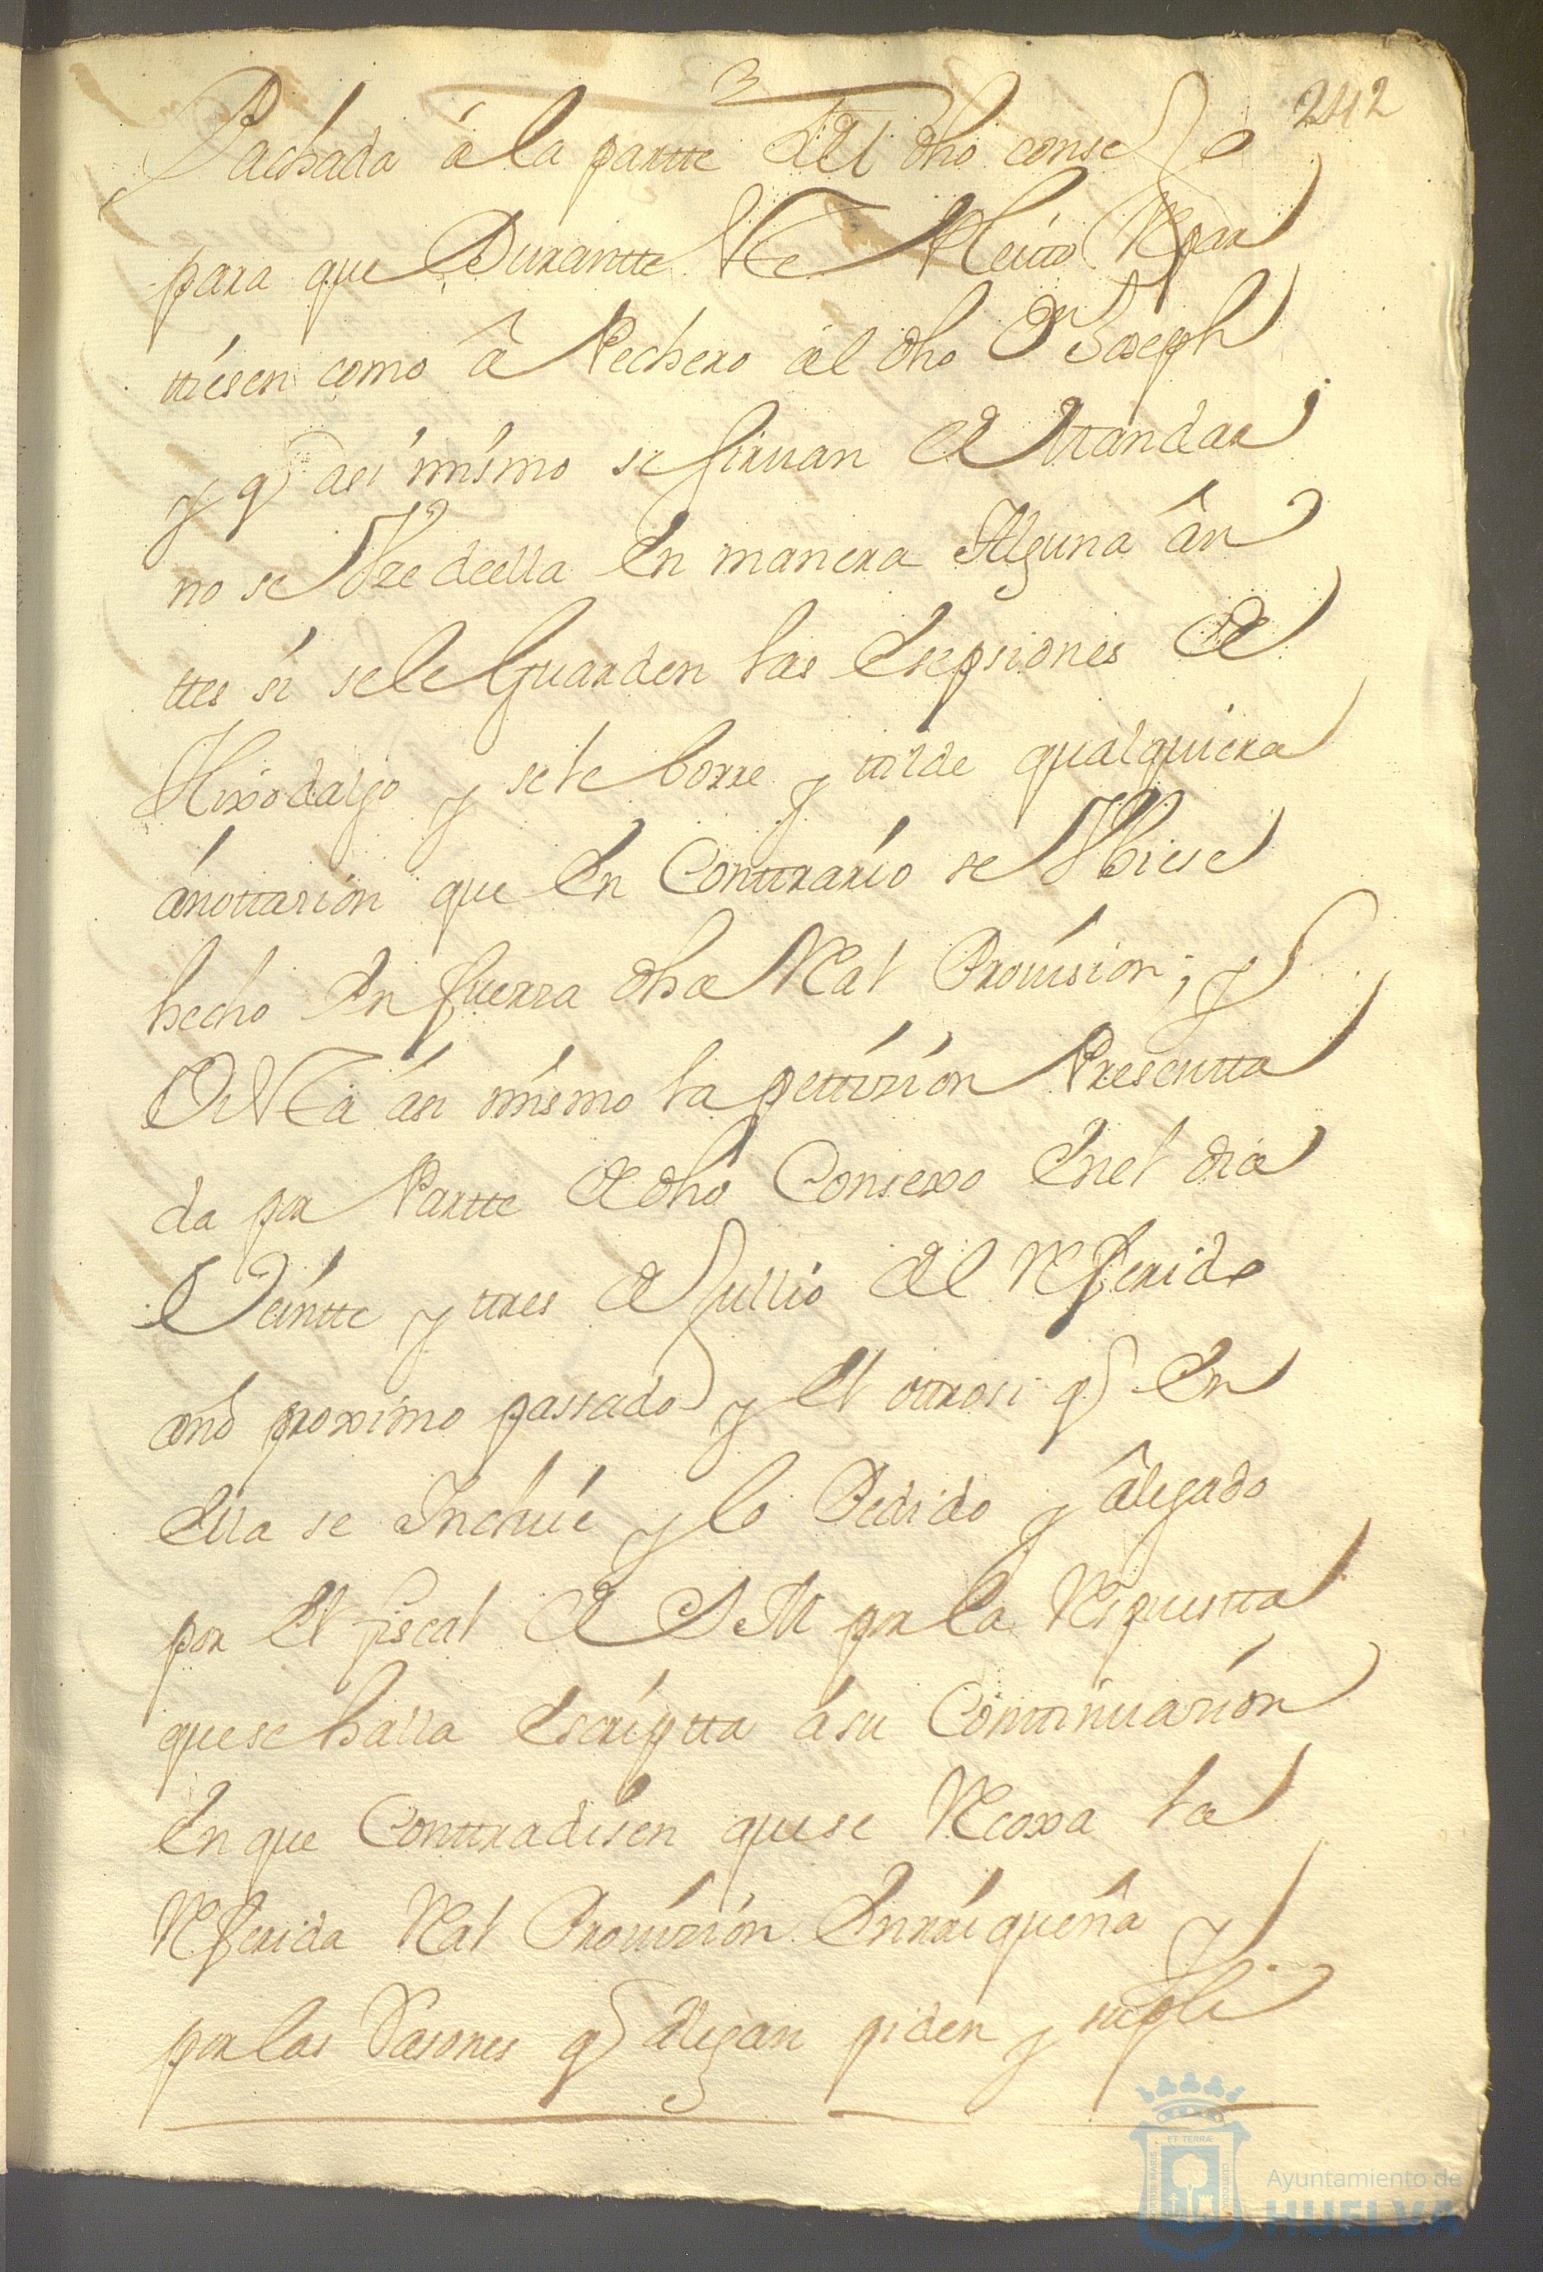 242
Pachada â la partte del dho conse Jo
para que Durantte este Pleito Repar
ttiesen como â Pechero âl dho Dn Joseph
y q asi mismo se siruan de Mandar
no se Vse deella En manera Alguna ân
ttes si sele Guarden las Esepsiones de
Hixodalgo y sele borre y tilde qualquiera
ânottasion que En Conttrario se Vbiese
hecho En fuerza dha Real Provision; y
Vista âsi mismo la pettizion Presentta
da por Partte de dho Consexo Enel dia
Veintte y ttres de Jullio del Referido
año proximo passado y El ottrosi q En
Ella se Incluie y lo Pedido y âlegado
por El fiscal de S M por la Respuestta
quese halla Escriptta âsu Conttinuasion
En que Conttradisen quese Recoxa la
Referida Real Provizion Enrriqueña y
por las Rasones q Alegan piden y supli
ET TERRÆ
Ayuntamiento de
HUELVA